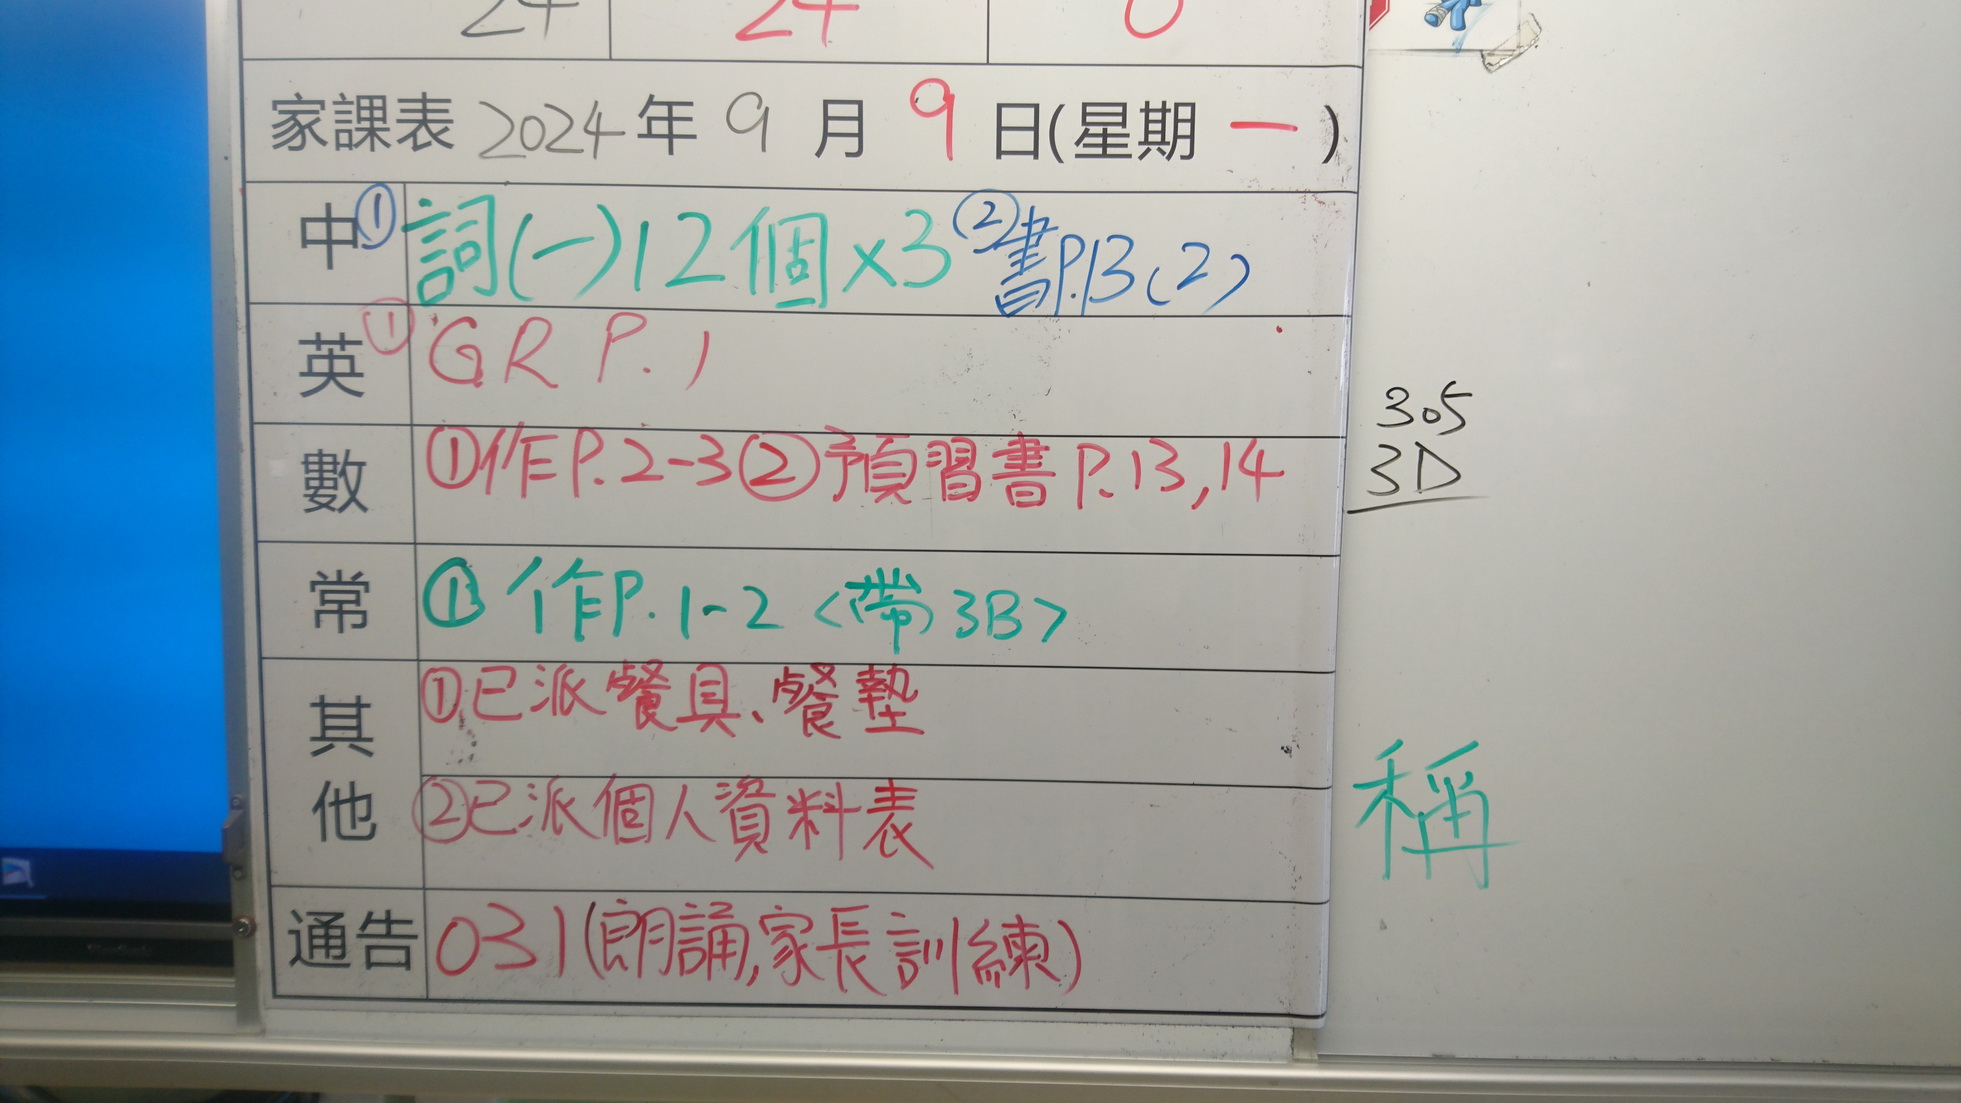 24 24 0
家課表 2024 年 9 月 9 日(星期 一 )
中 ①詞(一)12個×3 ②書P.13(2)
英 ①GR P.1
數 ①作P.2-3②預習書P.13,14
常 ①作P.1-2<帶3B>
其他 ①已派餐具、餐墊
②已派個人資料表
通告 031(朗誦,家長訓練)
305
3D
稱